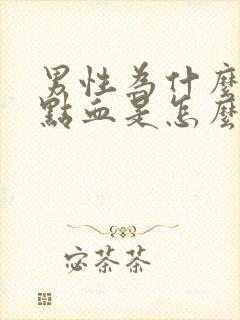 男性為什麼
點血是怎麼
宓茶茶